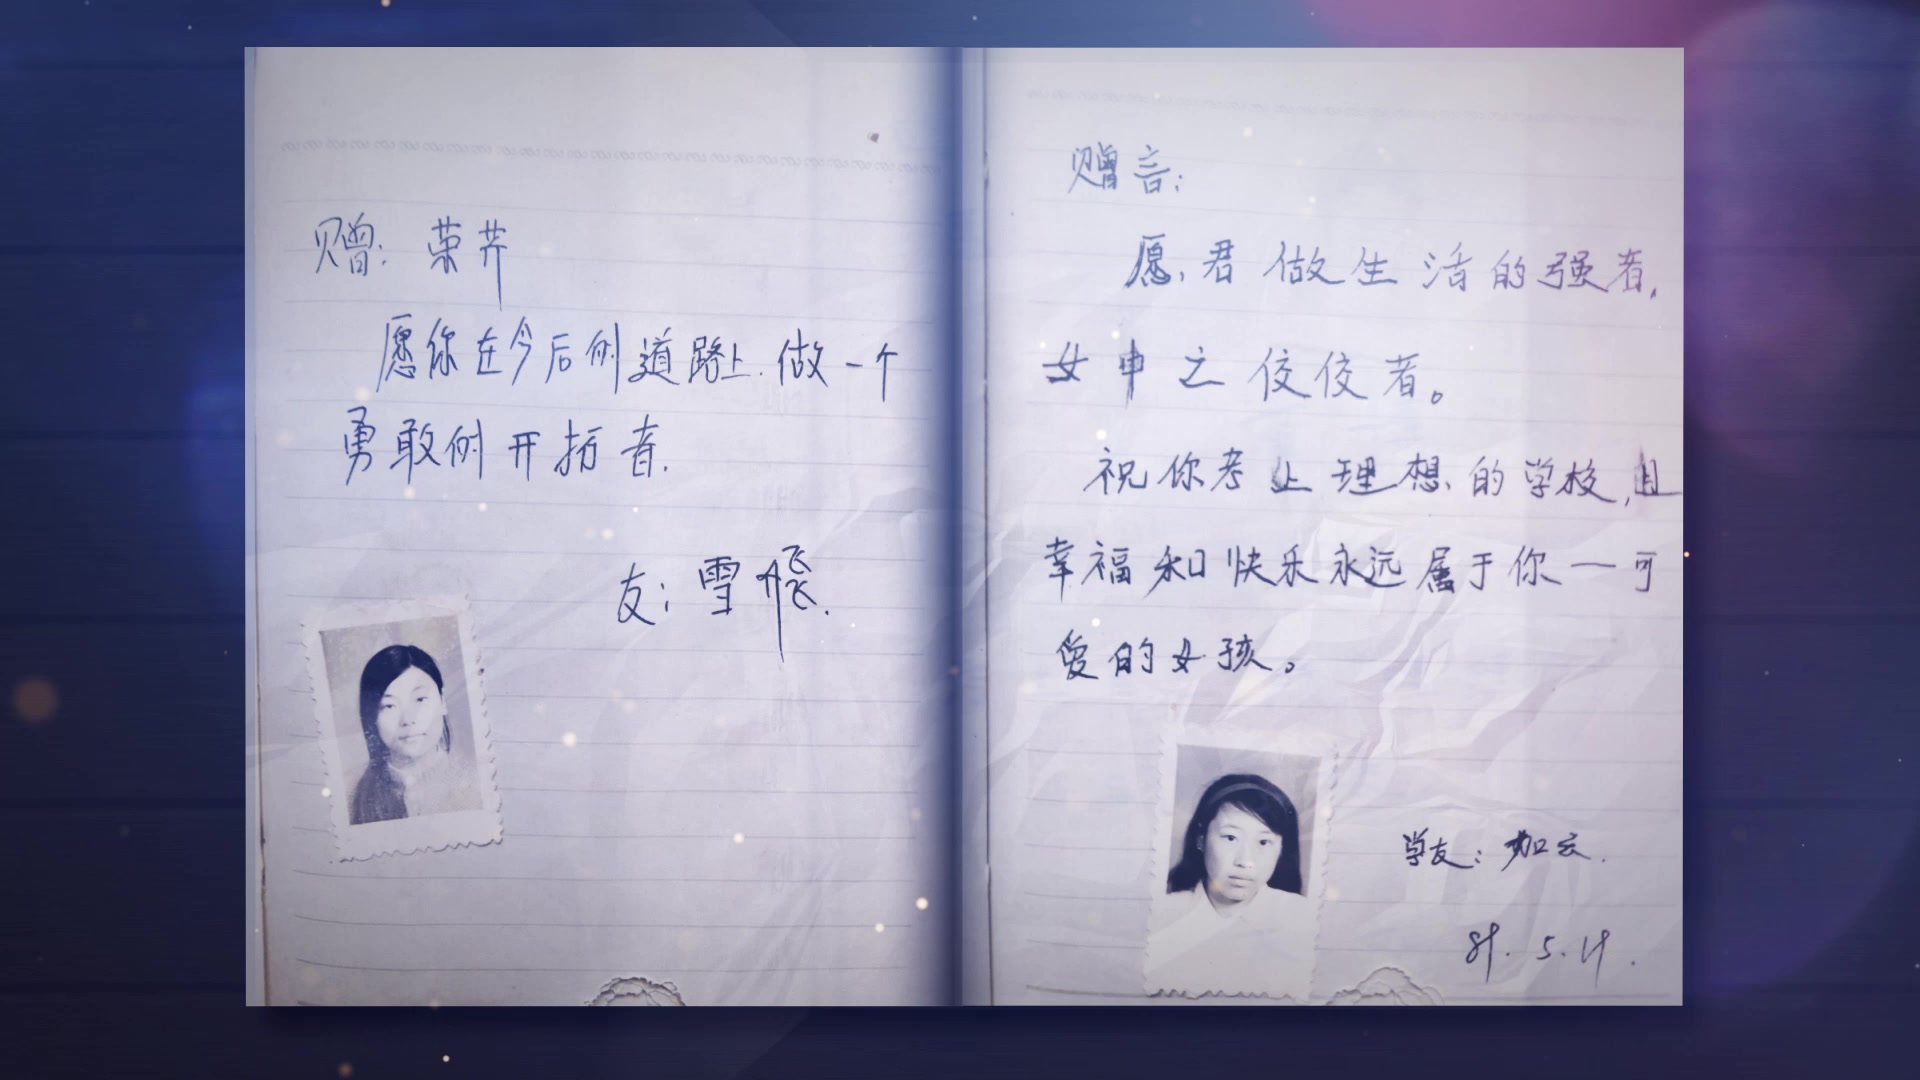 赠：荣芹
愿你在今后的道路上.做一个
勇敢的开拓者.
友：雪飞.
赠言：
愿君做生活的强者，
女中之佼佼者。
祝你考上理想的学校，且
幸福和快乐永远属于你一可
爱的女孩。
学友：加云.
89.5.19.